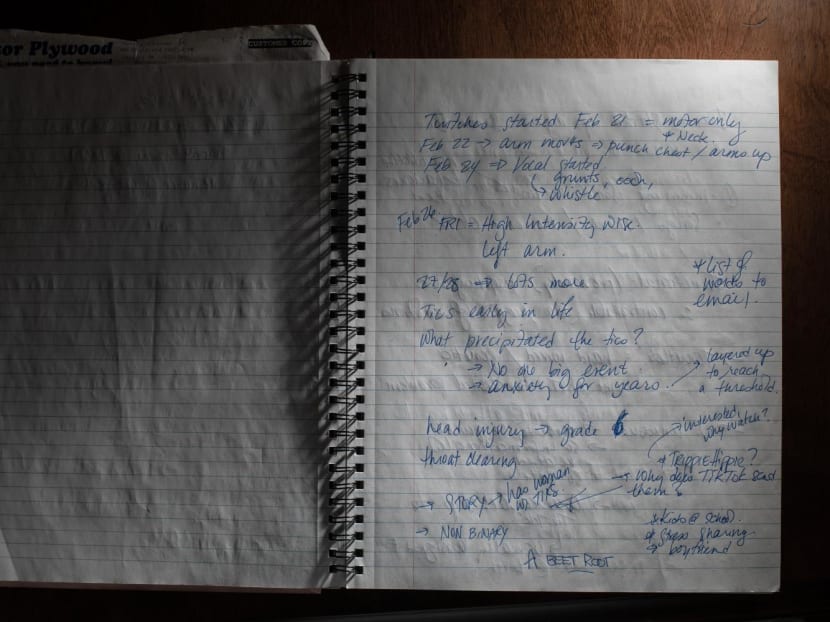 or Plywood
CUSTOMER COPY
Twitches started Feb 21 = motor only
& Neck.
Feb 22 → arm moves ⇒ punch chest / arms up
Feb 24 ⇒ Vocal started
↳ grunts, ooh,
↳ whistle
Feb 26 FRI = High Intensity wise
left arm.
27/28 ⇒ lots more
* list of
words to
email.
Tics early in life
What precipitated the tics?
→ No one big event
→ anxiety for years.
→ layered up
to reach
a threshold.
head injury → grade 6
→ interested,
why watch?
throat clearing
* Trippie Hippie?
→ Why does TikTok send
them
→ STORY → has woman
w/ TICS
→ NON BINARY
* Kids @ school.
* Stress sharing
→ boyfriend
A BEET ROOT